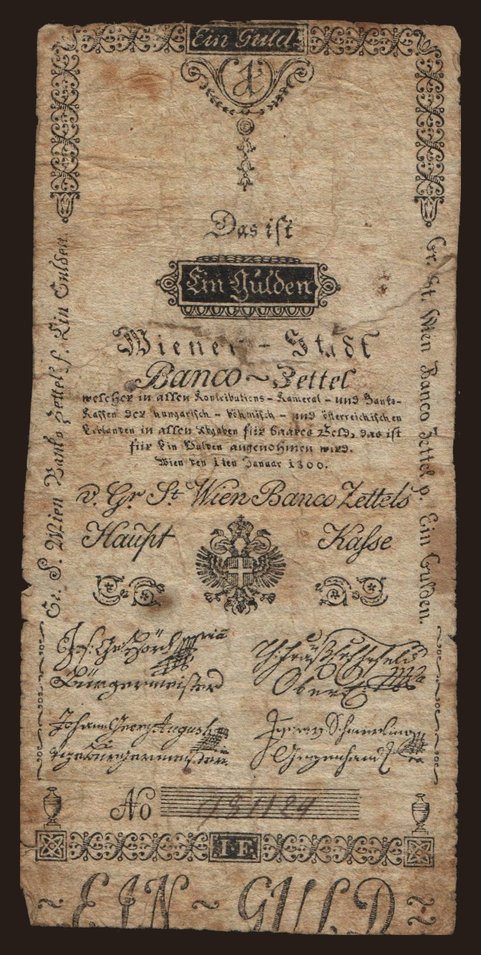 Ein Guld.
1
Das ist
Ein Gulden
Wiener-Stadt
Banco~Zettel
welcher in allen Kontributions-Kameral- und Banko-
Kassen der hungarisch-böhmisch- und österreichischen
Erblanden in allen Abgaben für baares Geld, das ist
für Ein Gulden angenommen wird.
Wien den 1ten Januar 1800.
v. Gr. St. Wien Banco Zettels
Haupt Kasse
Gr. S. Wien Banko Zettel p. Ein Gulden.
Gr. St. Wien Banco Zettel p. Ein Gulden.
Jos:
Bürgermeister
Ober
Johann Georg Augusti
Vizebürgermeister.
No
1 F.
~EIN~GULD